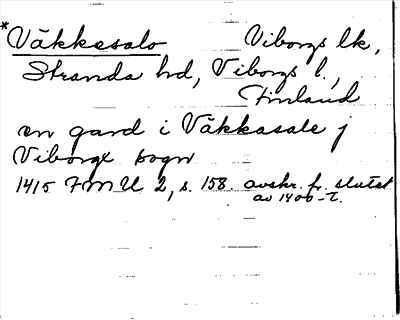 *Väkkasalo Viborgs lk,
Stranda hd, Viborgs l.,
Finland
en gard i Väkkasale j
Viborgx sogn
1415 FMU 2, s. 158. avskr. fr. slutet
av 1400-t.